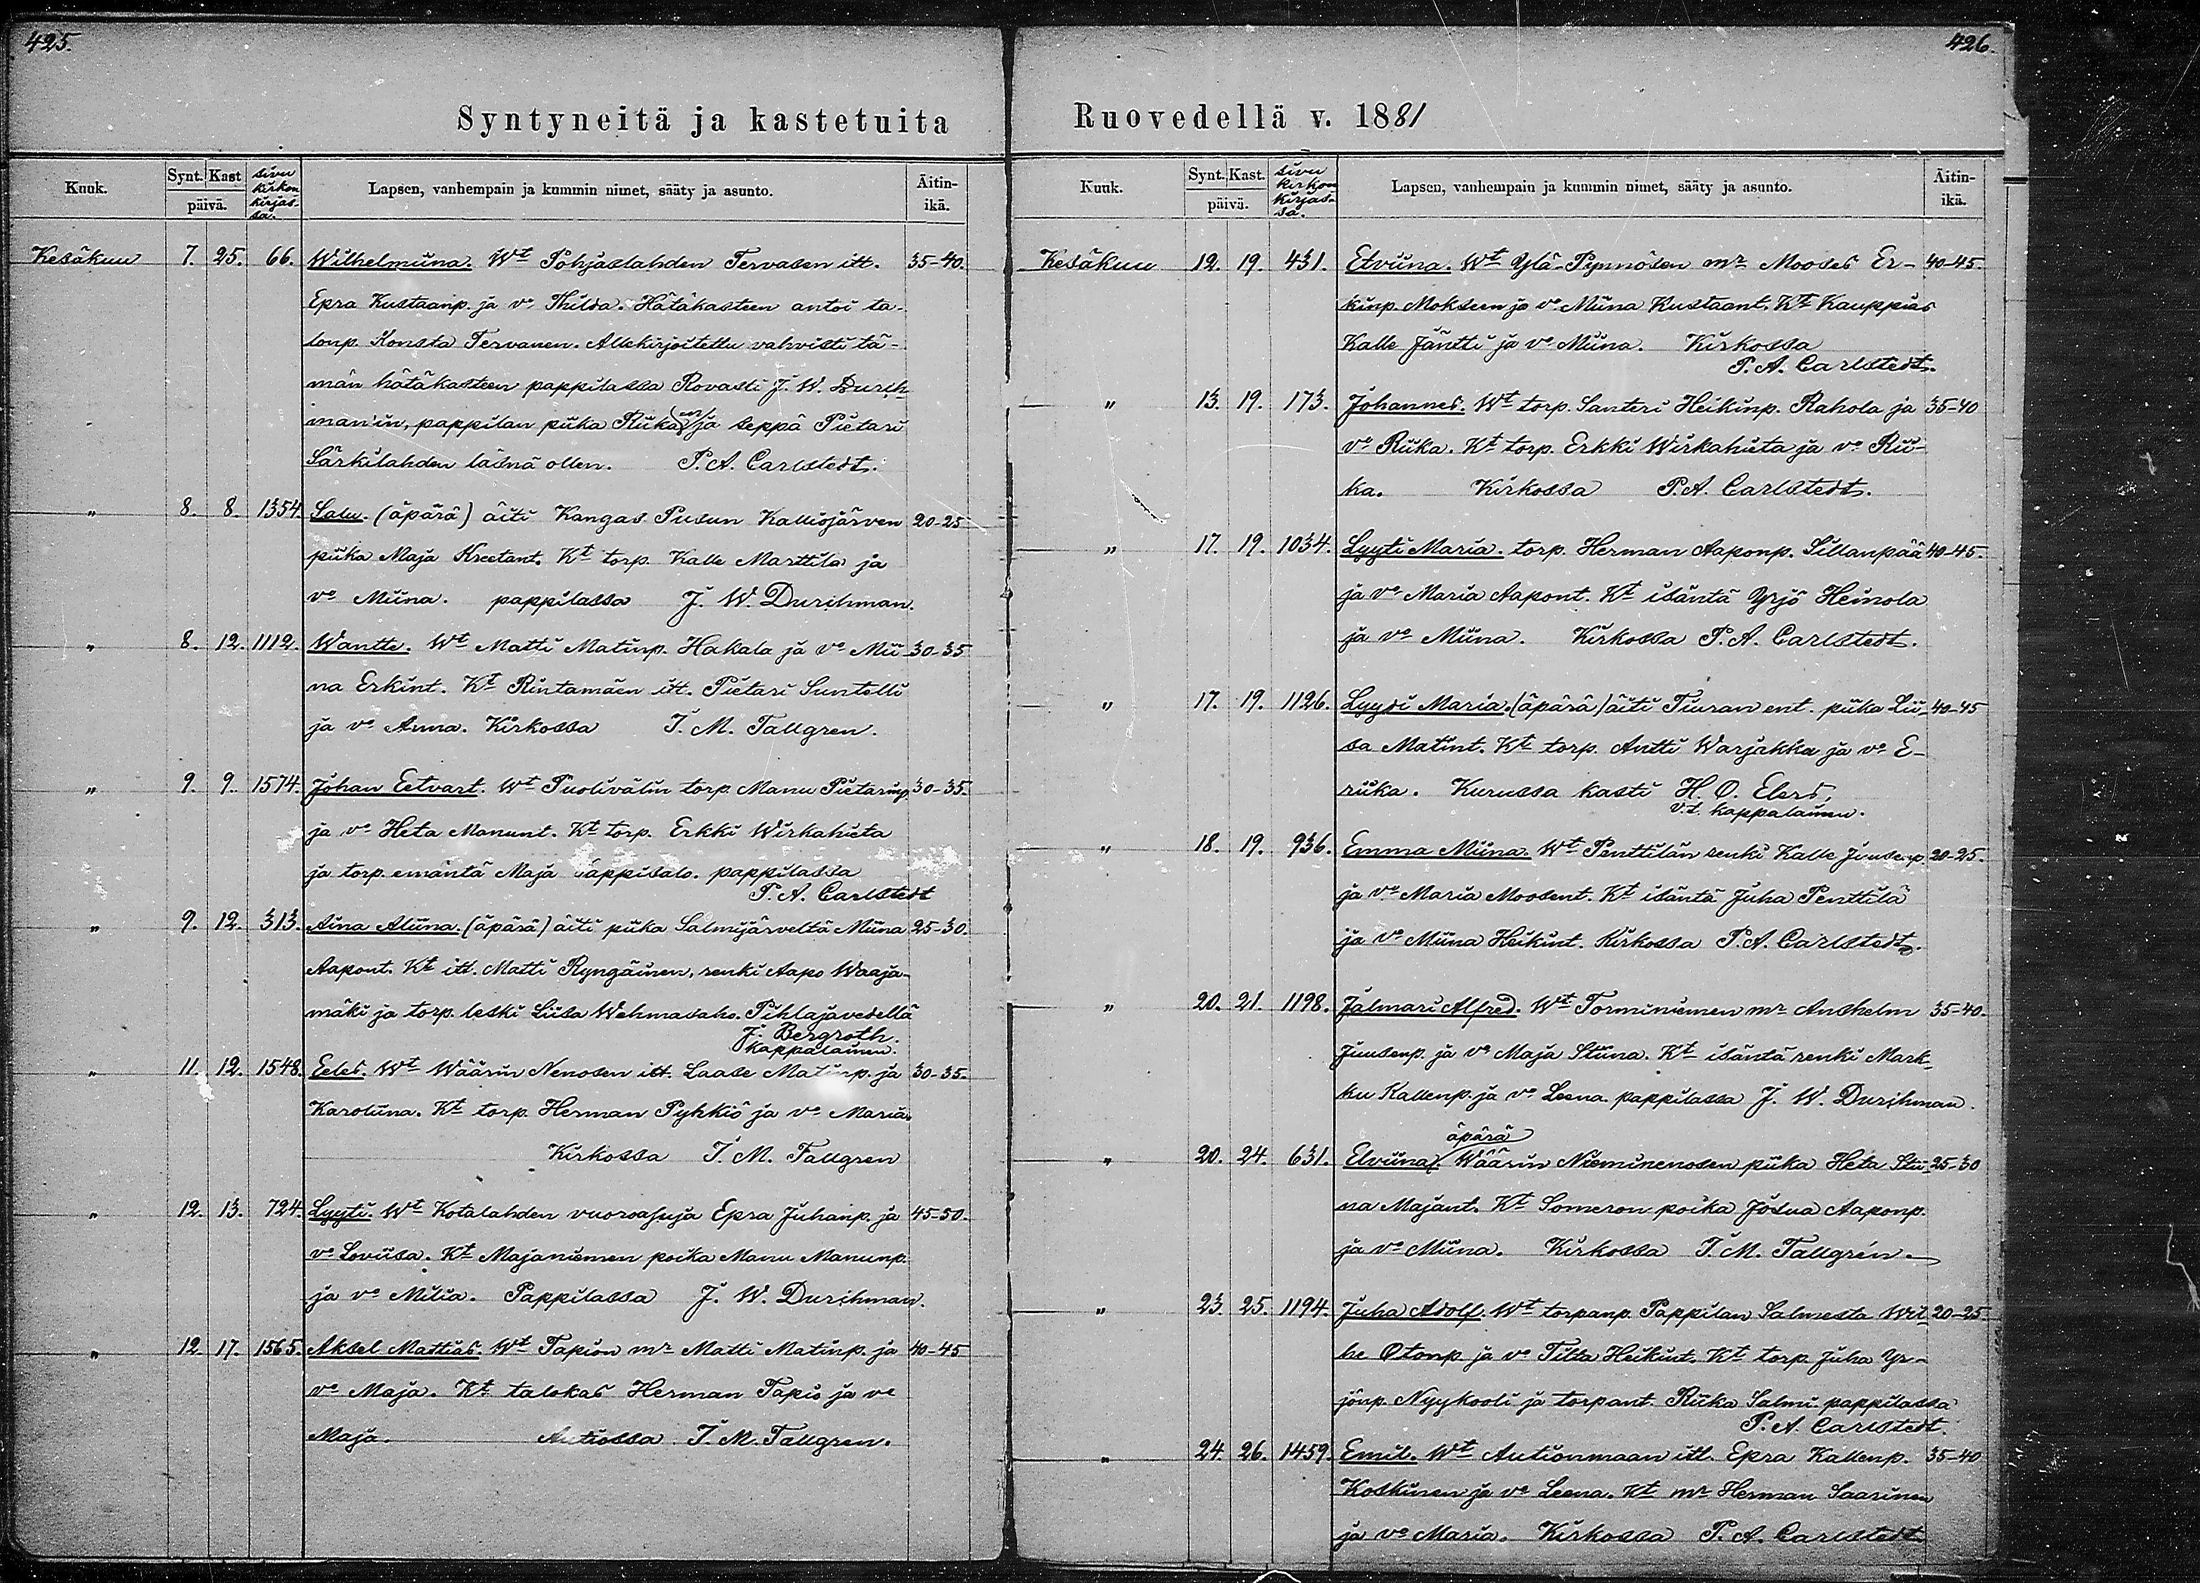 425.
Syntyneitä ja kastetuita
Kuuk.
Synt. Kast
päivä.
sivu kirkonkirjassa.
Lapsen, vanhempain ja kummin nimet, sääty ja asunto.
Äitin-
ikä.
Kesäkuu 7. 25. 66. Wilhelmiina. Wt Pohjaslahden Tervasen itt. 35-40.
Epra Kustaanp. ja vo Thilda. Hätäkasteen antoi ta-
lonp. Konsta Tervanen. Allekirjoitettu vahvisti tä-
män hätäkasteen pappilassa Rovasti J. W. Durch-
man'in, pappilan piika Riika ja seppä Pietari
Särkilahden läsnä ollen. P. A. Carlstedt.
" 8. 8. 1354. Salu. (äpärä) äiti Kangas Pusun Kalliojärven 20-25
piika Maja Kreetant. Kt torp. Kalle Marttila ja
vo Miina. pappilassa J. W. Durchman.
" 8. 12. 1112. Wantte. Wt Matti Matinp. Hakala ja vo Mii- 30-35
na Erkint. Kt Rintamäen itt. Pietari Suntelli
ja vo Anna. Kirkossa I. M. Tallgren.
" 9. 9. 1574. Johan Eetvart. Wt Puolivälin torp. Manu Pietarinp. 30-35.
ja vo Heta Manunt. Kt torp. Erkki Wirkahieta
ja torp. emäntä Maja äppisalo. pappilassa
P. A. Carlstedt
" 9. 12. 313. Aina Aliina. (äpärä) äiti piika Salmijärveltä Miina 25-30.
Aapont. Kt itt. Matti Ryngäinen, renki Aapo Waaja-
mäki ja torp. leski Liisa Wehmasaho. Pihlajavedellä
J. Bergroth.
kappalainen.
" 11. 12. 1548. Eeles. Wt Väärin Nenosen itt. Laase Matinp. ja 30-35.
Karoliina. Kt torp. Herman Pyhkiö ja vo Maria.
Kirkossa I. M. Tallgren
" 12. 13. 724. Lyyti. Wt Kotalahden vuorasuja Epra Juhanp. ja 45-50.
vo Loviisa. Kt Majaniemen poika Manu Manunp.
ja vo Milia. Pappilassa J. W. Durchman.
" 12. 17. 1565. Aksel Mattias. Wt Tapion mr Matti Matinp. ja 40-45
vo Maja. Kt talokas Herman Tapio ja vo
Maja. Autiossa I. M. Tallgren.
426.
Ruovedellä v. 1881
Kuuk.
Synt. Kast.
päivä.
sivu kirkonkirjassa.
Lapsen, vanhempain ja kummin nimet, sääty ja asunto.
Äitin-
ikä.
Kesäkuu 12. 19. 431. Etviina. Wt Ylä-Pynnösen mr Mooses Er- 40-45.
kinp. Moksun ja vo Miina Kustaant. Kt Kauppias
Kalle Jäntti ja vo Miina. Kirkossa
P. A. Carlstedt.
" 13. 19. 173. Johannes. Wt torp. Santeri Heikinp. Rahola ja 35-40
vo Riika. Kt torp. Erkki Wirkahieta ja vo Rii-
ka. Kirkossa P. A. Carlstedt.
" 17. 19. 1034. Lyyti Maria. torp. Herman Aaponp. Sillanpää 40-45.
ja vo Maria Aapont. Kt isäntä Yrjö Heinola
ja vo Miina. Kirkossa P. A. Carlstedt.
" 17. 19. 1126. Lyydi Maria. (äpärä) äiti Tiuran ent. piika Lii- 40-45
sa Matint. Kt torp. Antti Warjakka ja vo E-
riika. Kurussa kasti H. O. Elers,
v.t. kappalainen.
" 18. 19. 936. Emma Miina. Wt Penttilän renki Kalle Juusenp. 20-25.
ja vo Maria Moosent. Kt isäntä Juha Penttilä
ja vo Miina Heikint. Kirkossa P. A. Carlstedt.
" 20. 21. 1198. Jalmari Alfred. Wt Torminiemen mr Anshelm 35-40.
Juusenp. ja vo Maja Stiina. Kt isäntärenki Mark-
ku Kallenp. ja vo Leena. pappilassa J. W. Durchman.
äpärä
" 20. 24. 631. Elviina. Väärin Nieminenosen piika Heta Stii- 25-30
na Majant. Kt Someron poika Josua Aaponp.
ja vo Miina. Kirkossa I. M. Tallgrén.
" 23. 25. 1194. Juha Adolf. Wt torpanp. Pappilan Salmesta Wil- 20-25
he Otonp. ja vo Tilta Heikint. Kt torp. Juha Yr-
jönp. Nyykooli ja torpant. Riika Salmi. pappilassa
P. A. Carlstedt.
" 24. 26. 1459. Emil. Wt Autionmaan itl. Epra Kallenp. 35-40
Koskinen ja vo Leena. Kt mr Herman Saarinen
ja vo Maria. Kirkossa P. A. Carlstedt